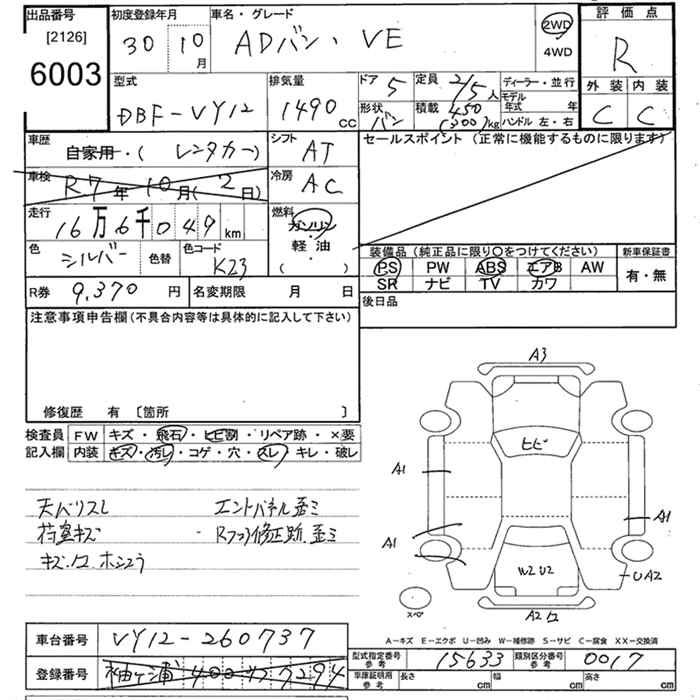 出品番号
[2126]
6003
初度登録年月
30 10月
車名・グレード
ADバン・VE
2WD
4WD
評価点
R
外装 内装
C C
型式
DBF-VY12
排気量
1490cc
ドア 5
定員 2/5人
形状 バン
積載 450(300)kg
ディーラー・並行
モデル年式 年
ハンドル 左・右
車歴
自家用・(レンタカー)
シフト AT
車検
R.7年10月(2日)
冷房 AC
走行
16万6千049km
燃料
ガソリン
軽油
( )
色
シルバー
色替
色コード
K23
セールスポイント (正常に機能するものに限ります)
装備品 (純正品に限り○をつけてください)
PS PW ABS エアB AW
SR ナビ TV カワ
新車保証書
有・無
R券 9,370円
名変期限 月 日
後日品
注意事項申告欄(不具合内容等は具体的に記入して下さい)
修復歴 有 〔箇所 〕
検査員記入欄
FW キズ・飛石・ヒビ割・リペア跡・×要
内装 キズ・汚レ・コゲ・穴・スレ・キレ・破レ
天バリスレ
エンドパネル歪ミ
荷室キズ
・Rフロア修正跡.歪ミ
A3
ヒビ
A1
A1
A1
W2 U2
UA2
スペア
A2
A-キズ E-エクボ U-凹み W-補修跡 S-サビ C-腐食 XX-交換済
車台番号 VY12-260737
登録番号
型式指定番号 参考 15633
類別区分番号 参考 0017
車庫証明用 参考
長さ cm 幅 cm 高さ cm